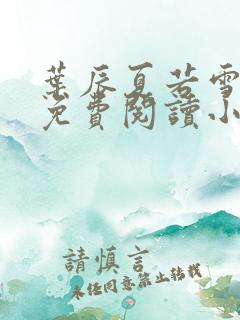 葉辰夏若雪
免費閱讀小
請慎言
未經同意禁止轉載